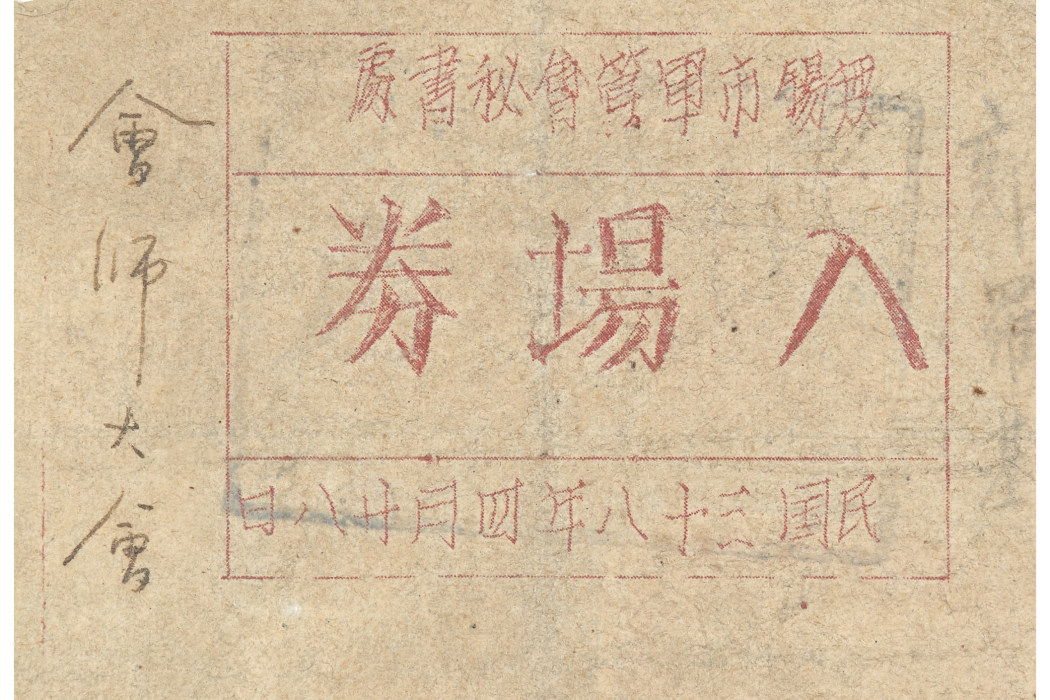 無錫市軍管會秘書處
入場券
民国三十八年四月廿八日
會師大會